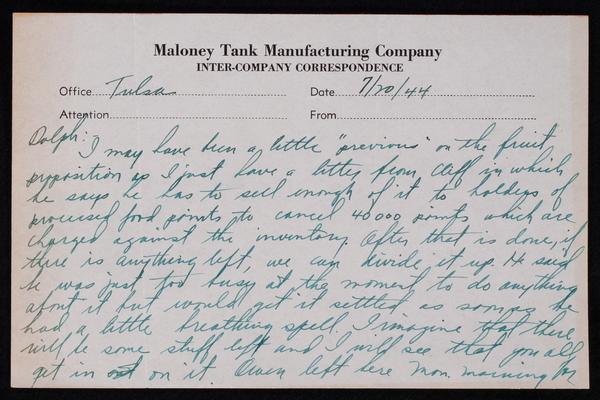 Maloney Tank Manufacturing Company
INTER-COMPANY CORRESPONDENCE
Office Tulsa Date 7/20/44
Attention From
Dolph:
I may have been a little "previous" on the fruit
proposition as I just have a letter from Cliff in which
he says he has to sell enough of it to holders of
processed food points to cancel 40000 points which are
charged against the inventory. After that is done, if
there is anything left, we can divide it up. He said
he was just too busy at the moment to do anything
about it but would get it settled as soon as he
had a little breathing spell. I imagine that there
will be some stuff left and I will see that you all
get in on it. Owen left here Mon. morning for